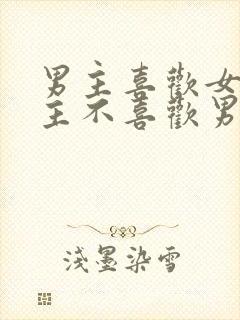 男主喜歡女
主不喜歡男
淺墨染雪